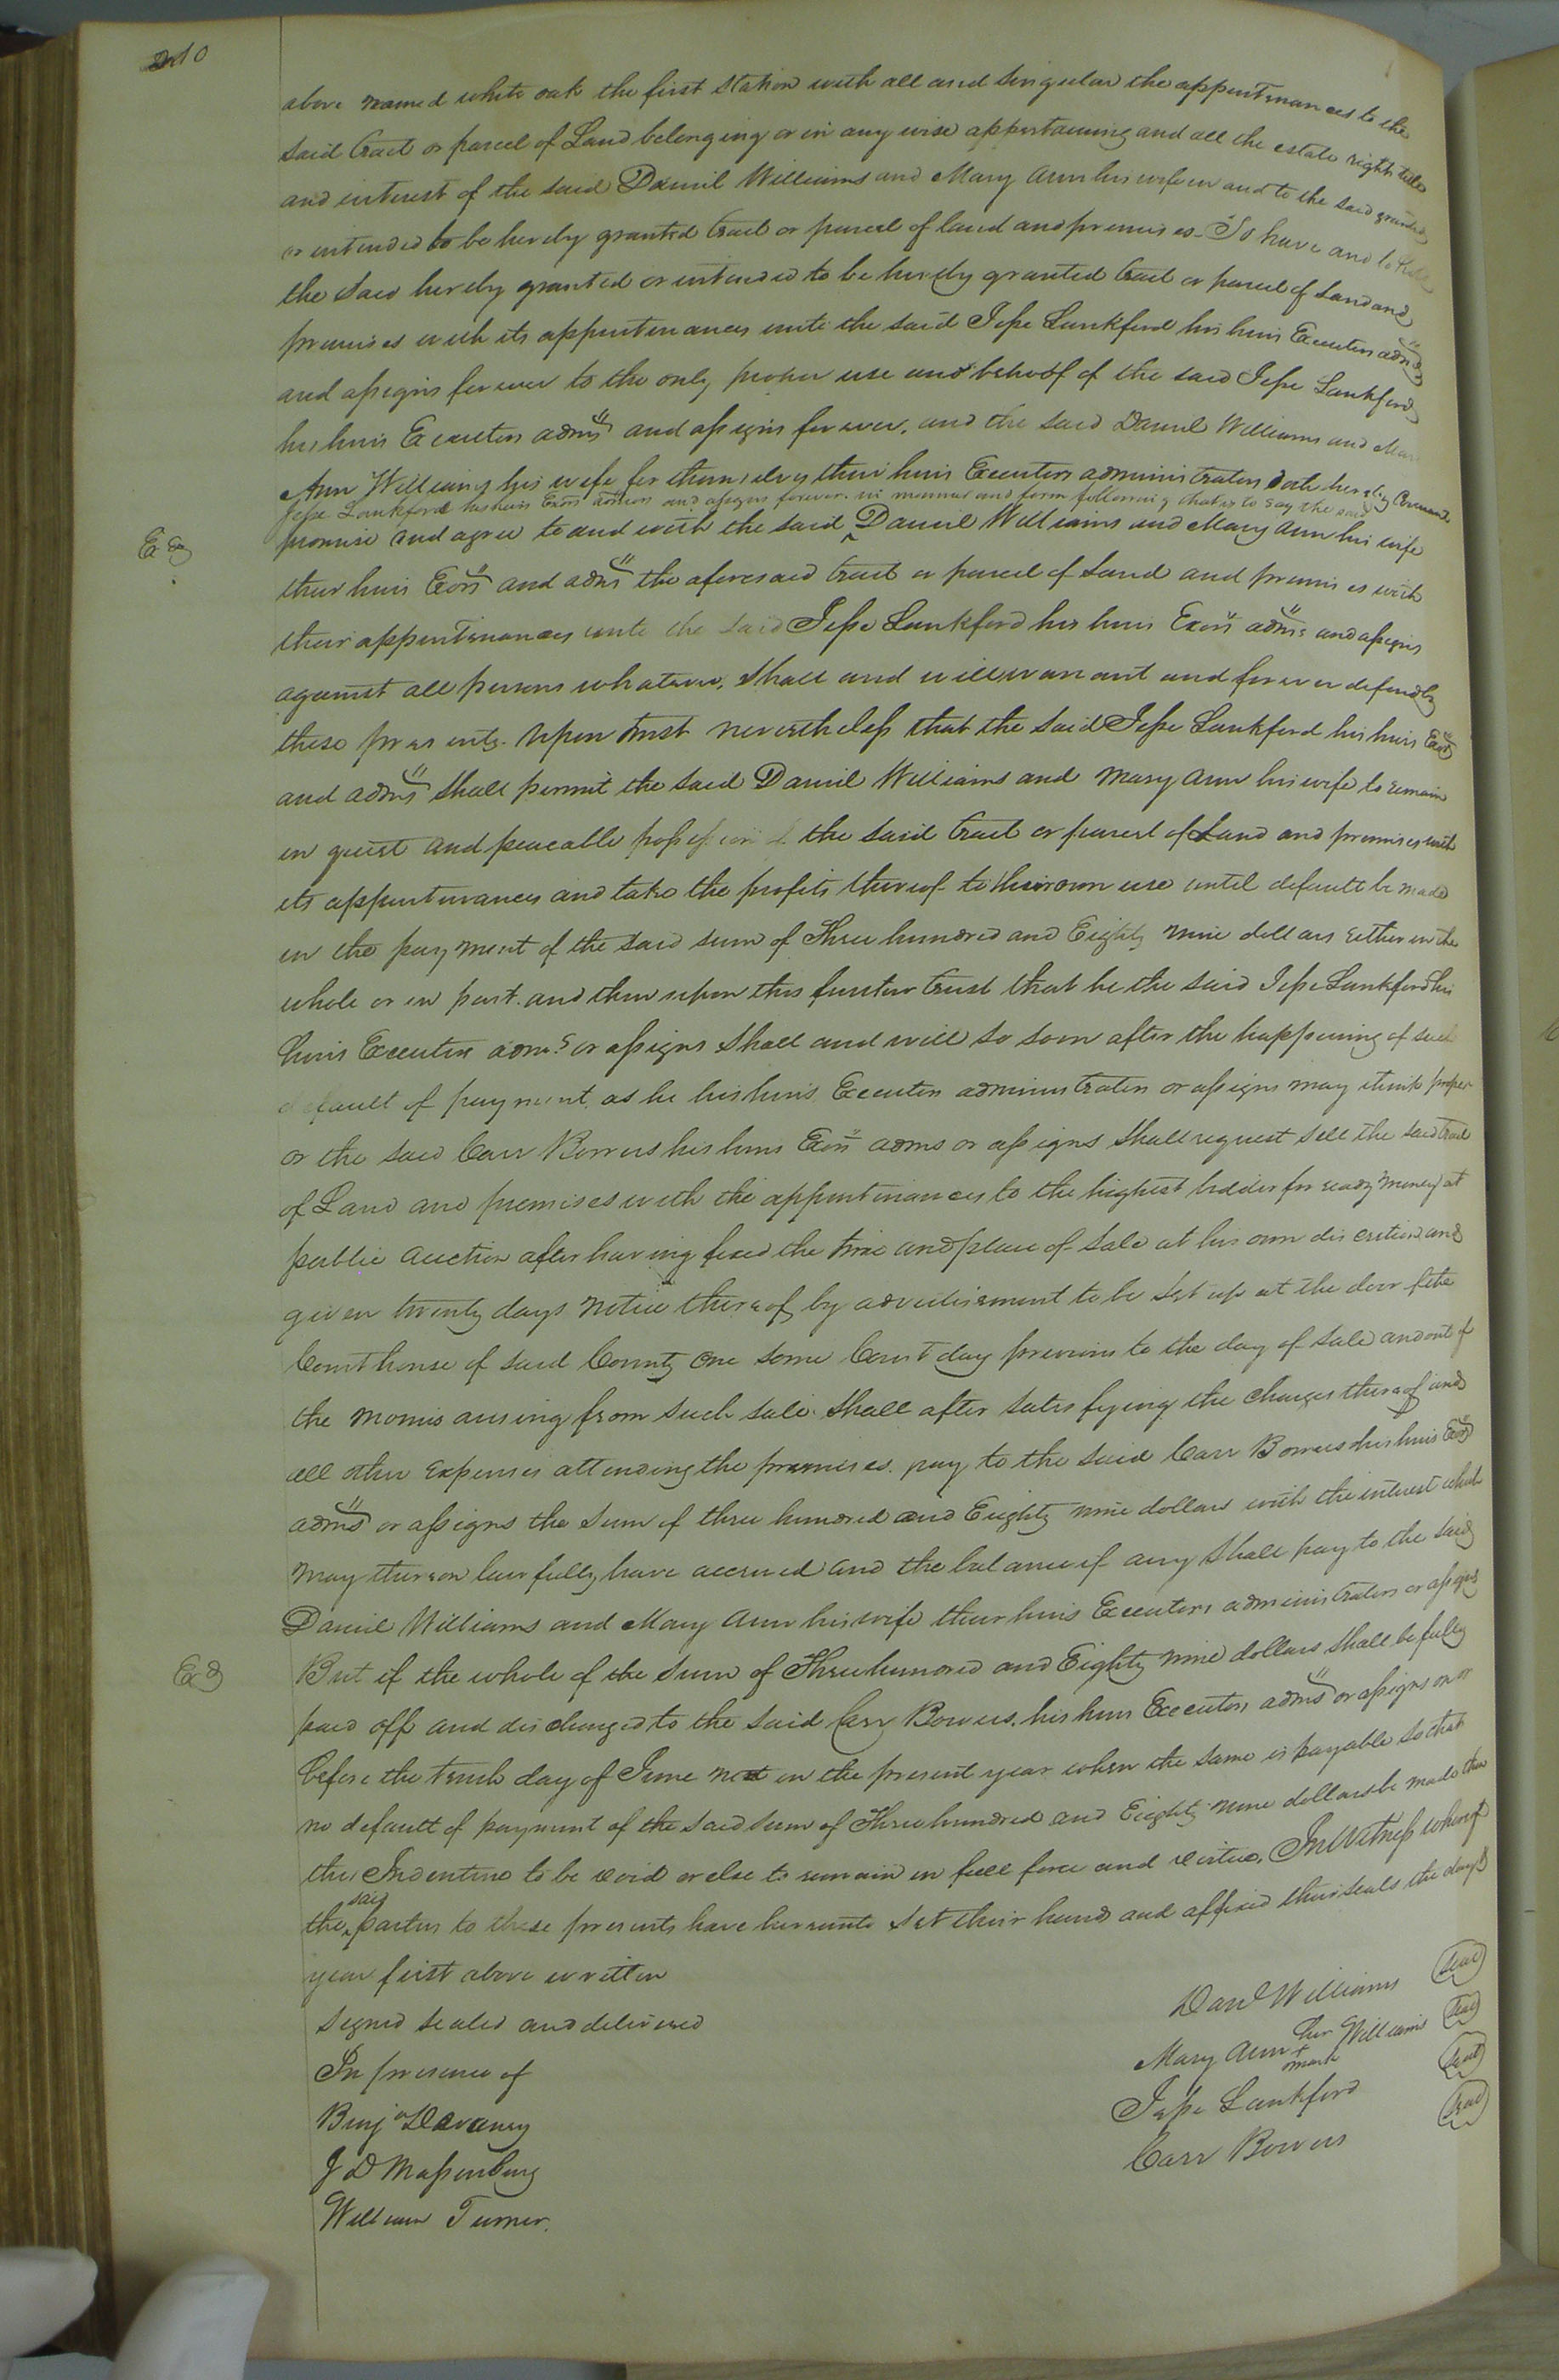 210
above named white oak the first Station with all and Singular the appurtenances to the
said tract or parcel of Land belonging or in any wise appertaining and all the estate right title
and interest of the said Daniel Williams and Mary Ann his wife in and to the said granted
or intended to be hereby granted tract or parcel of land and premises. To have and to Hold
the said hereby granted or intended to be hereby granted tract or parcel of Land and
premises with its appurtenances unto the said Jesse Lankford his heirs Executors adms
and assigns forever to the only proper use and behoof of the said Jesse Lankford
his heirs Executors adms and assigns forever, and the said Daniel Williams and Mary
Ann Williams his wife for themselves their heirs Executors administrators doth hereby Covenant
Jesse Lankford his heirs Exors admors and assigns forever. in manner and form following that is to say the said
promise and agree to and with the said ^ Daniel Williams and Mary Ann his wife
their heirs Exors and adms the aforesaid tract or parcel of Land and premises with
their appurtenances unto the said Jesse Lankford his heirs Exors adms and assigns
against all persons whatever, Shall and will warrant and forever defend by
these presents. Upon trust nevertheless that the said Jesse Lankford his heirs Exors
and adms Shall permit the said Daniel Williams and Mary Ann his wife to remain
in quiet and peaceable possession of the said tract or parcel of Land and premises with
its appurtenances and take the profits thereof to their own use until default be made
in the payment of the said sum of Three hundred and Eighty nine dollars either in the
whole or in part. and then upon this further trust that he the said Jesse Lankford his
heirs Executors adms or assigns Shall and will so soon after the happening of such
default of payment, as he his heirs Executors administrators or assigns may think proper
or the said Carr Bowers his heirs Exors adms or assigns Shall request sell the said tract
of Land and premises with the appurtenances to the highest bidder for ready money at
public auction after having fixed the time and place of Sale at his own discretion and
given twenty days notice thereof by advertisement to be Set up at the door of the
Courthouse of said County One some Court day previous to the day of Sale and out of
the monies arising from such sale Shall after satisfying the charges thereof and
all other Expenses attending the premises. pay to the said Carr Bowers his heirs Exors
adms or assigns the Sum of three hundred and Eighty nine dollars with the interest which
may thereon lawfully have accrued and the balance if any Shall pay to the said
Daniel Williams and Mary Ann his wife their heirs Executors administrators or assigns
But if the whole of the Sum of Three hundred and Eighty nine dollars Shall be fully
paid off and discharged to the said Carr Bowers, his heirs Executors adms or assigns on or
before the tenth day of June next in the present year when the same is payable so that
no default of payment of the said sum of Three hundred and Eighty nine dollars be made then
this Indenture to be void or else to remain in full force and virtue, In Witness whereof
the ^said parties to these presents have hereunto Set their hands and affixed their seals the day &
year first above written
Signed Sealed and delivered
In presence of
Benjn Devany
J D Massenburg
William Turner.
Danl Williams Seal
Mary Ann her + mark Williams Seal
Jesse Lankford Seal
Carr Bowers Seal